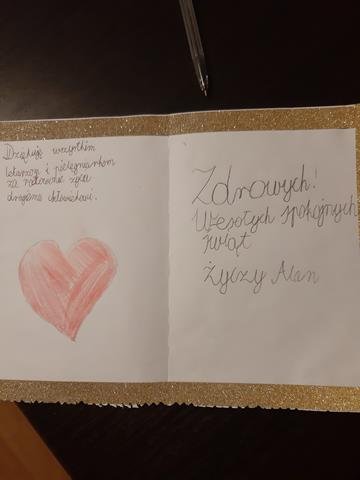 Dziękuję wszystkim
lekarzom i pielęgniarkom
za ratowanie życia
drugiemu człowiekowi.
Zdrowych!
Wesołych spokojnych
świąt
Życzy Alan